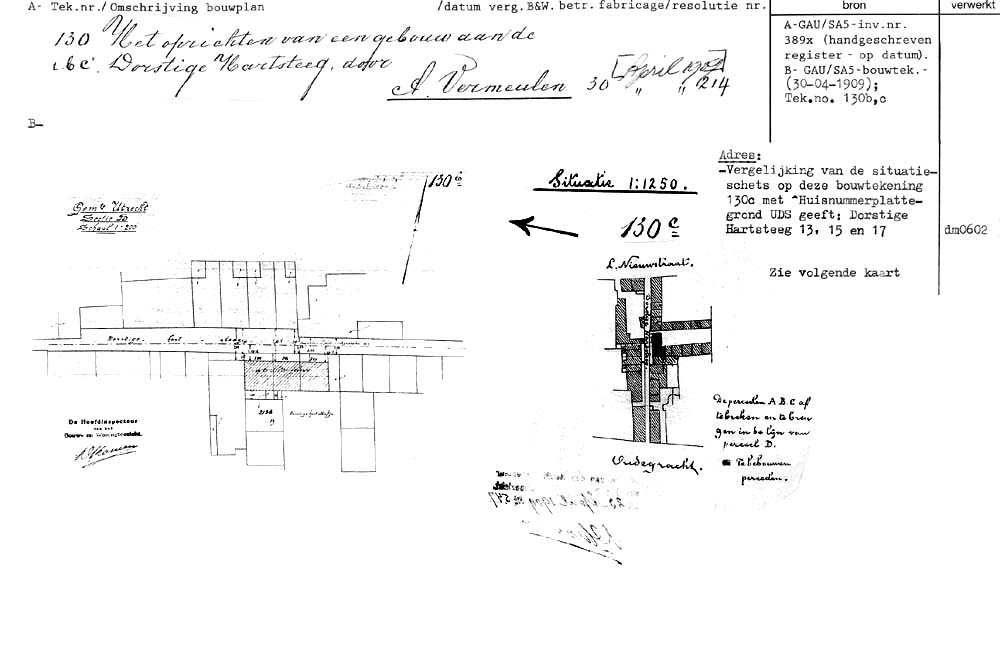 A- Tek.nr./ Omschrijving bouwplan /datum verg.B&W. betr. fabricage/resolutie nr. bron verwerkt
130 Het oprichten van een gebouw aan de
b&c. Dorstige Hartsteeg, door
A. Vermeulen 30 [April 1909] 214
A-GAU/SA5-inv.nr.
389x (handgeschreven
register - op datum).
B- GAU/SA5-bouwtek.-
(30-04-1909);
Tek.no. 130b,c
B-
130 b
Gemte Utrecht
Sectie
Schaal 1:200
De Hoofdinspecteur
van het
Bouw- en Woningtoezicht.
Situatie 1:1250.
130 c
L. Nieuwstraat.
Oudegracht.
De perceelen A.B.C af
te breken en te bren
gen in de lijn van
perceel D.
Te bebouwen
perceelen.
Adres:
-Vergelijking van de situatie-
schets op deze bouwtekening
130c met "Huisnummerplatte-
grond UDS geeft; Dorstige
Hartsteeg 13, 15 en 17
dm0602
Zie volgende kaart